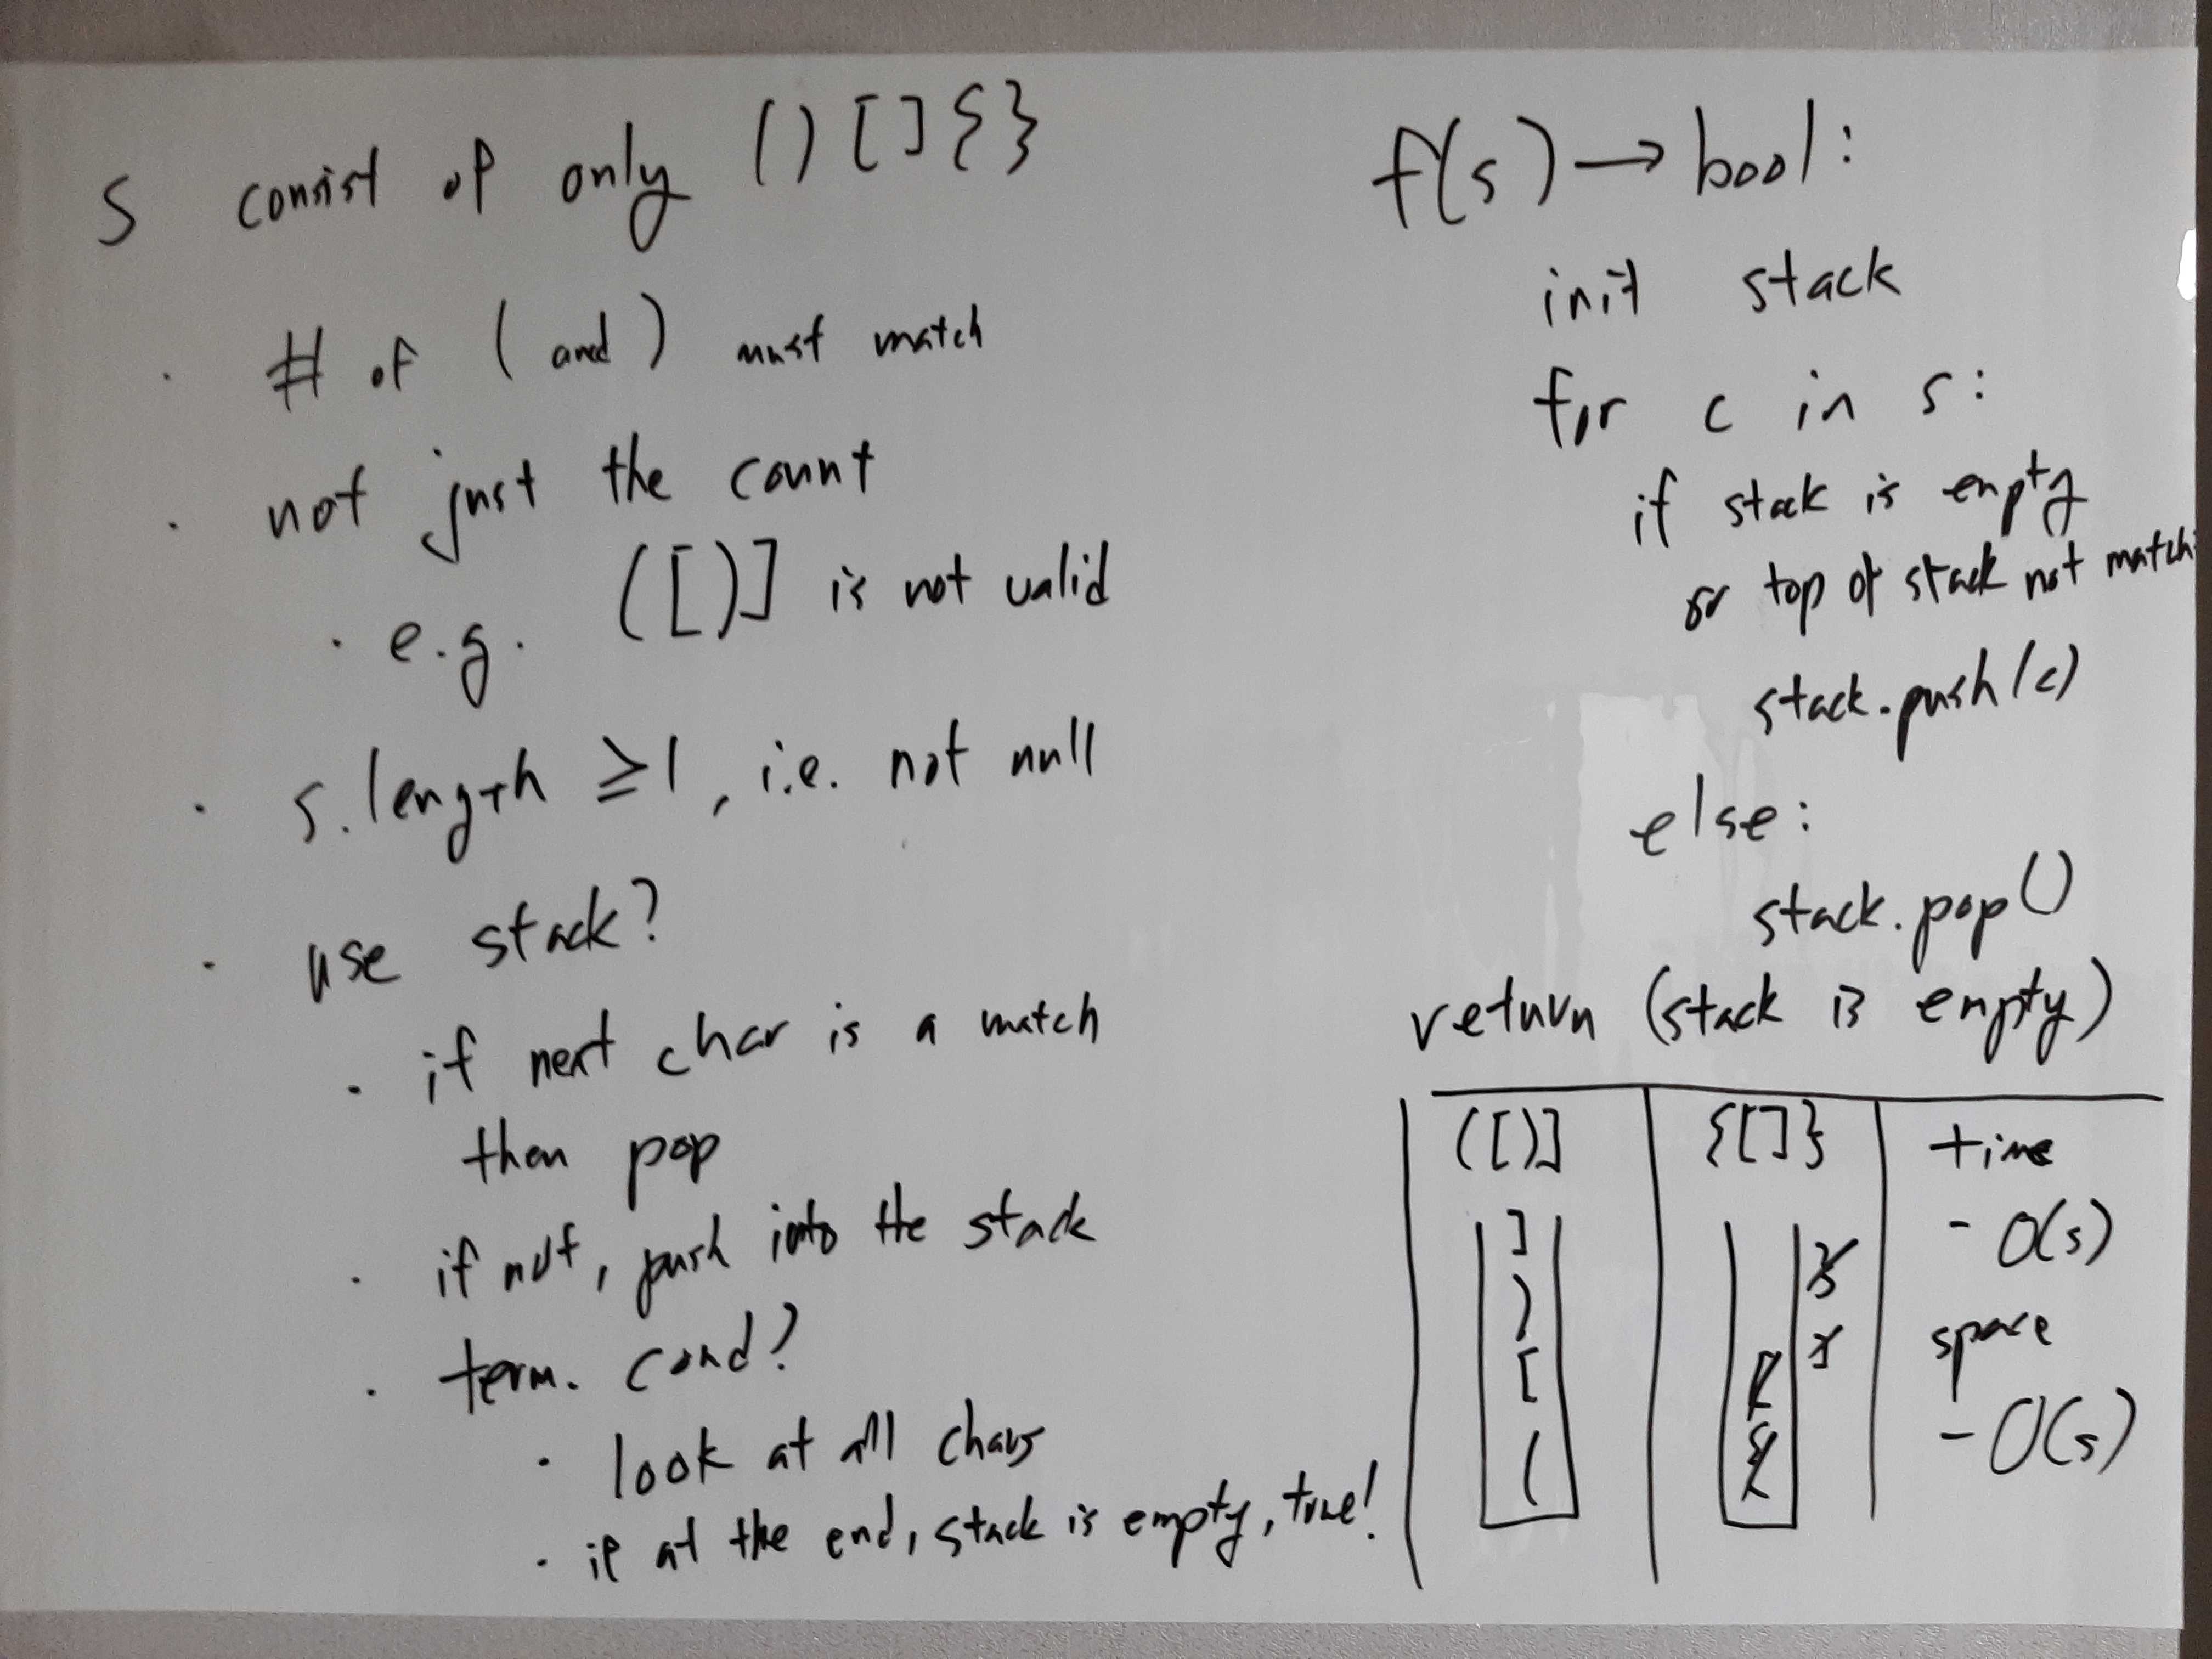 S consist of only ()[]{}
· # of ( and ) must match
· not just the count
· e.g. ([)] is not valid
· s.length ≥1, i.e. not null
· use stack?
· if next char is a match
then pop
· if not, push into the stack
· term. cond?
· look at all chars
· if at the end, stack is empty, true!
f(s) → bool:
init stack
for c in s:
if stack is empty
or top of stack not match:
stack.push(c)
else:
stack.pop()
return (stack is empty)
([)]
]
)
[
(
{[]}
}
]
[
{
time
- O(s)
space
- O(s)